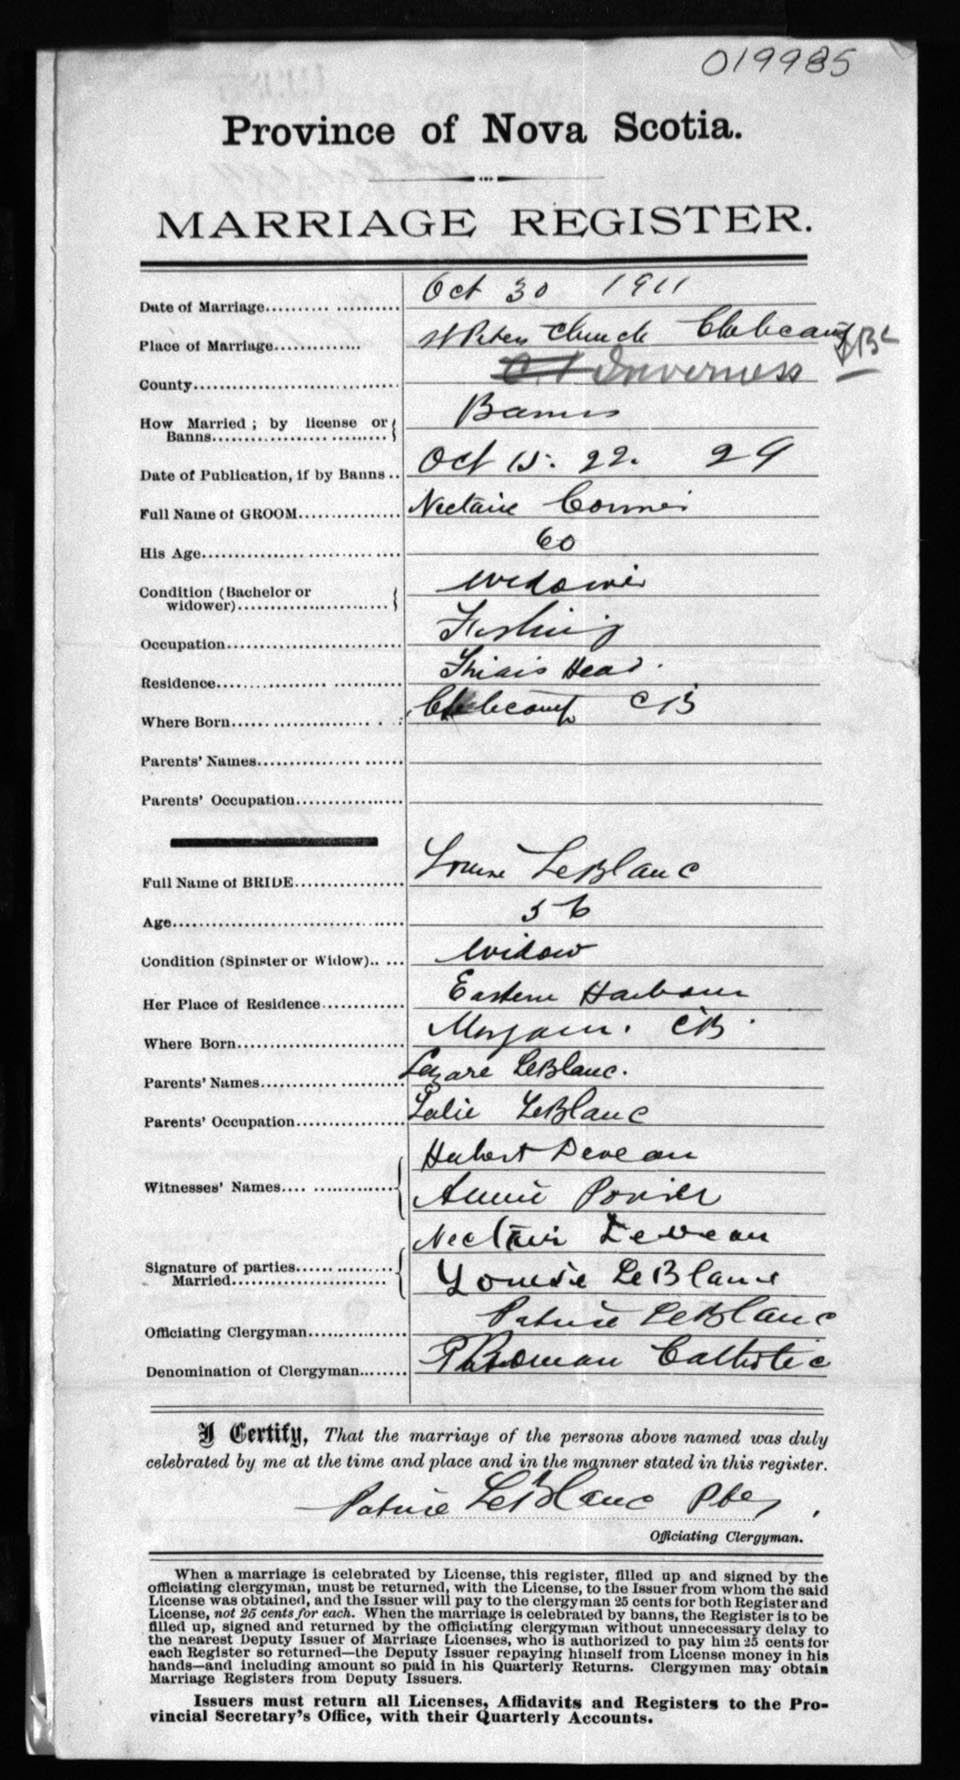 019985
Province of Nova Scotia.
MARRIAGE REGISTER.
Date of Marriage Oct 30 1911
Place of Marriage St Peters Church Chebcamp
County Inverness
How Married; by license or Banns
Banns
Date of Publication, if by Banns Oct 15. 22. 29
Full Name of GROOM Nectaire Cormier
His Age 60
Condition (Bachelor or widower)
widower
Occupation Fishing
Residence Head.
Where Born Chebcamp CB
Parents' Names
Parents' Occupation
Full Name of BRIDE Louise LeBlanc
Age 56
Condition (Spinster or Widow) Widow
Her Place of Residence Eastern Harbour
Where Born CB.
Parents' Names Lazare LeBlanc.
Parents' Occupation Lalie LeBlanc
Hubert Deveau
Witnesses' Names
Annie Poirier
Nectair Deveau
Signature of parties Married
Louise LeBlanc
Officiating Clergyman Patrice LeBlanc
Denomination of Clergyman Roman Catholic
I Certify, That the marriage of the persons above named was duly
celebrated by me at the time and place and in the manner stated in this register.
Patrice LeBlanc Pbr
Officiating Clergyman.
When a marriage is celebrated by License, this register, filled up and signed by the
officiating clergyman, must be returned, with the License, to the Issuer from whom the said
License was obtained, and the Issuer will pay to the clergyman 25 cents for both Register and
License, not 25 cents for each. When the marriage is celebrated by banns, the Register is to be
filled up, signed and returned by the officiating clergyman without unnecessary delay to
the nearest Deputy Issuer of Marriage Licenses, who is authorized to pay him 25 cents for
each Register so returned—the Deputy Issuer repaying himself from License money in his
hands—and including amount so paid in his Quarterly Returns. Clergymen may obtain
Marriage Registers from Deputy Issuers.
Issuers must return all Licenses, Affidavits and Registers to the Pro-
vincial Secretary's Office, with their Quarterly Accounts.